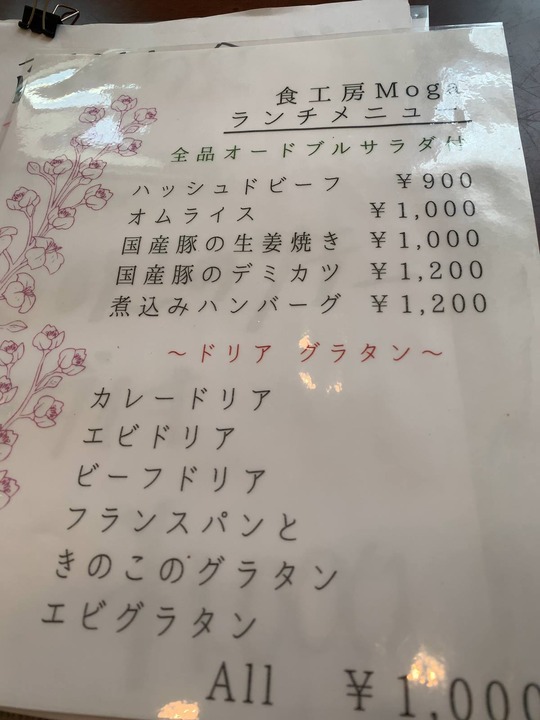 食工房Moga
ランチメニュー
全品オードブルサラダ付
ハッシュドビーフ ￥900
オムライス ￥1,000
国産豚の生姜焼き ￥1,000
国産豚のデミカツ ￥1,200
煮込みハンバーグ ￥1,200
～ドリア グラタン～
カレードリア
エビドリア
ビーフドリア
フランスパンと
きのこのグラタン
エビグラタン
All ￥1,000